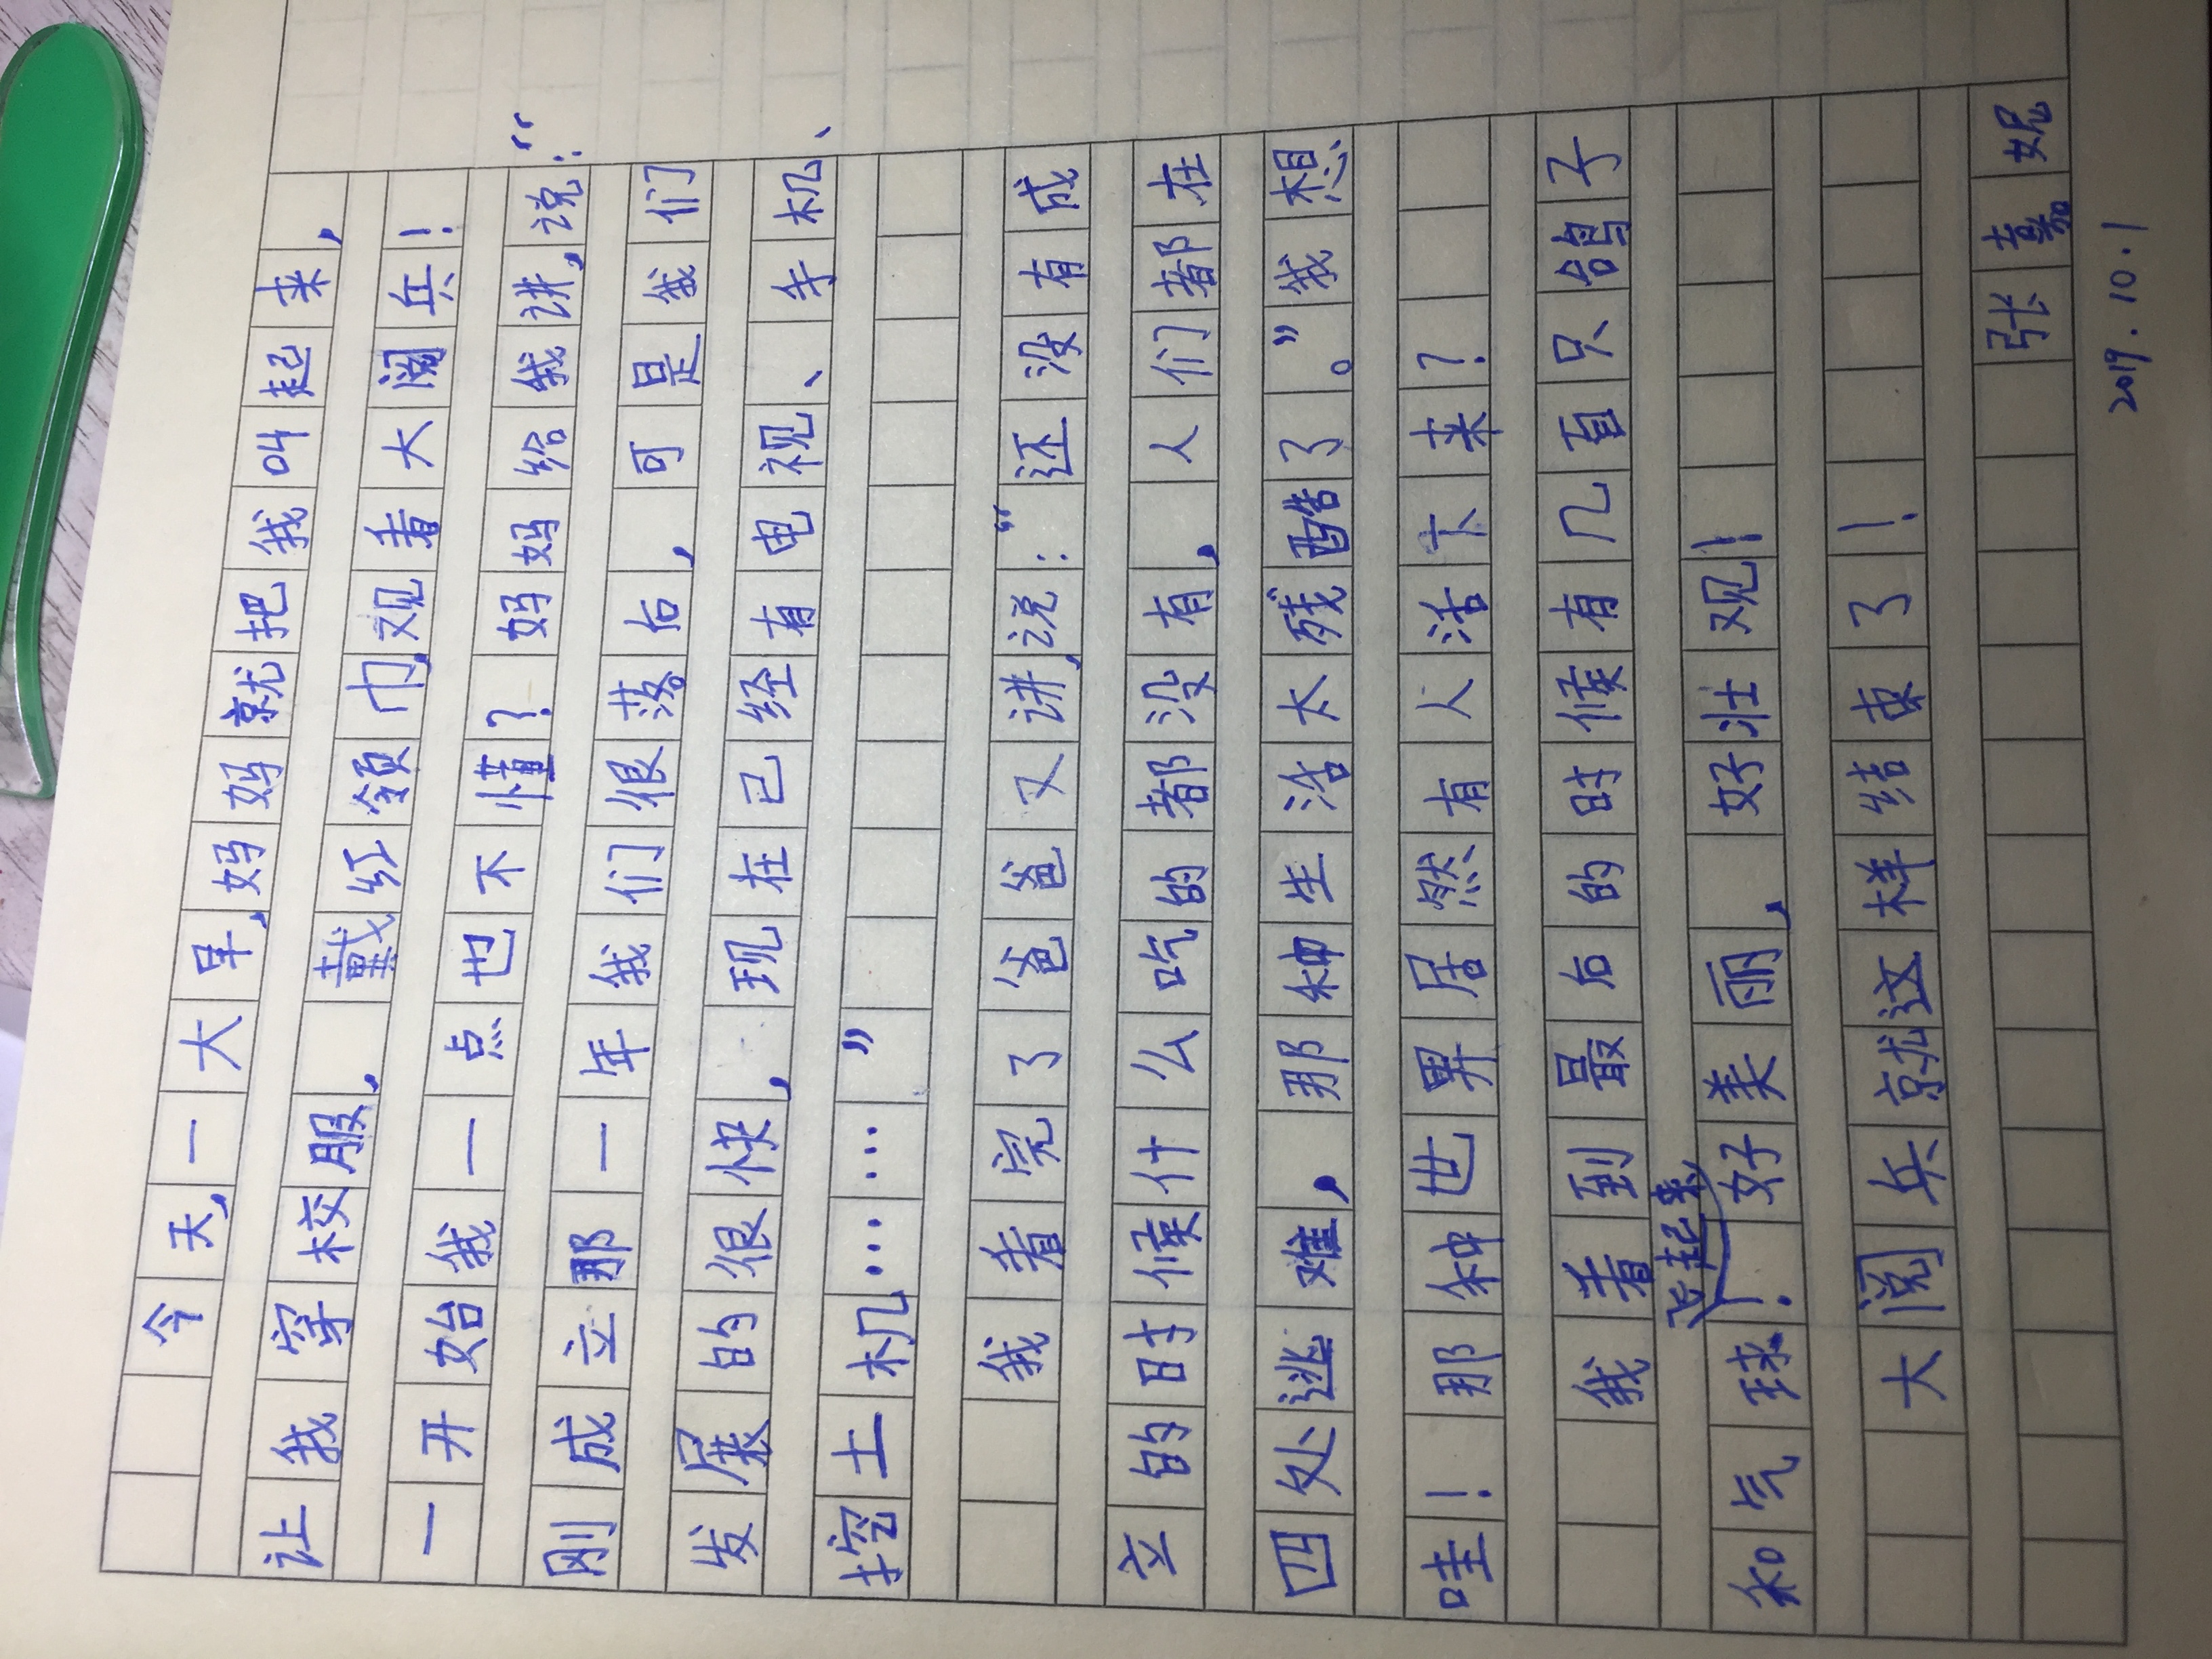 今天，一大早，妈妈就把我叫起来，
让我穿校服，戴红领巾，观看大阅兵！
一开始我一点也不懂？妈妈给我讲，说：“
刚成立那一年我们很落后，可是我们
发展的很快，现在已经有电视、手机、
挖土机……”
我看完了爸爸又讲，说：“还没有成
立的时候什么吃的都没有，人们都在
四处逃难，那种生活太残酷了。”我想
哇！那种世界居然有人活下来？
我看到最后的时候有几百只鸽子
和气球飞起来！好美丽，好壮观！
大阅兵就这样结束了！
张嘉妮
2019.10.1